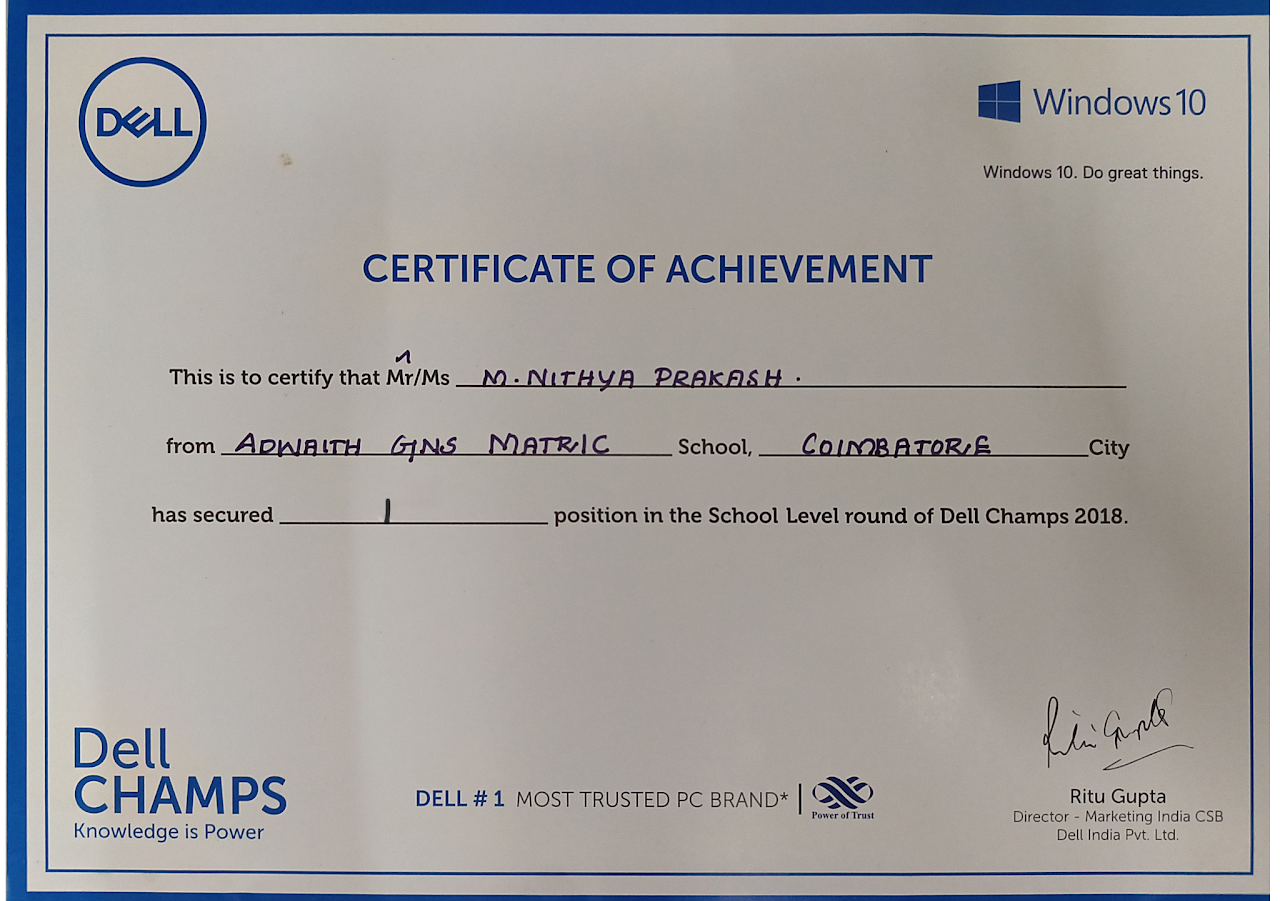 DELL
Windows 10
Windows 10. Do great things.
CERTIFICATE OF ACHIEVEMENT
This is to certify that Mr/Ms M. NITHYA PRAKASH.
from ADWAITH GNS MATRIC School, COIMBATORE City
has secured 1 position in the School Level round of Dell Champs 2018.
Dell
CHAMPS
Knowledge is Power
DELL # 1 MOST TRUSTED PC BRAND*
Power of Trust
Ritu Gupta
Ritu Gupta
Director - Marketing India CSB
Dell India Pvt. Ltd.